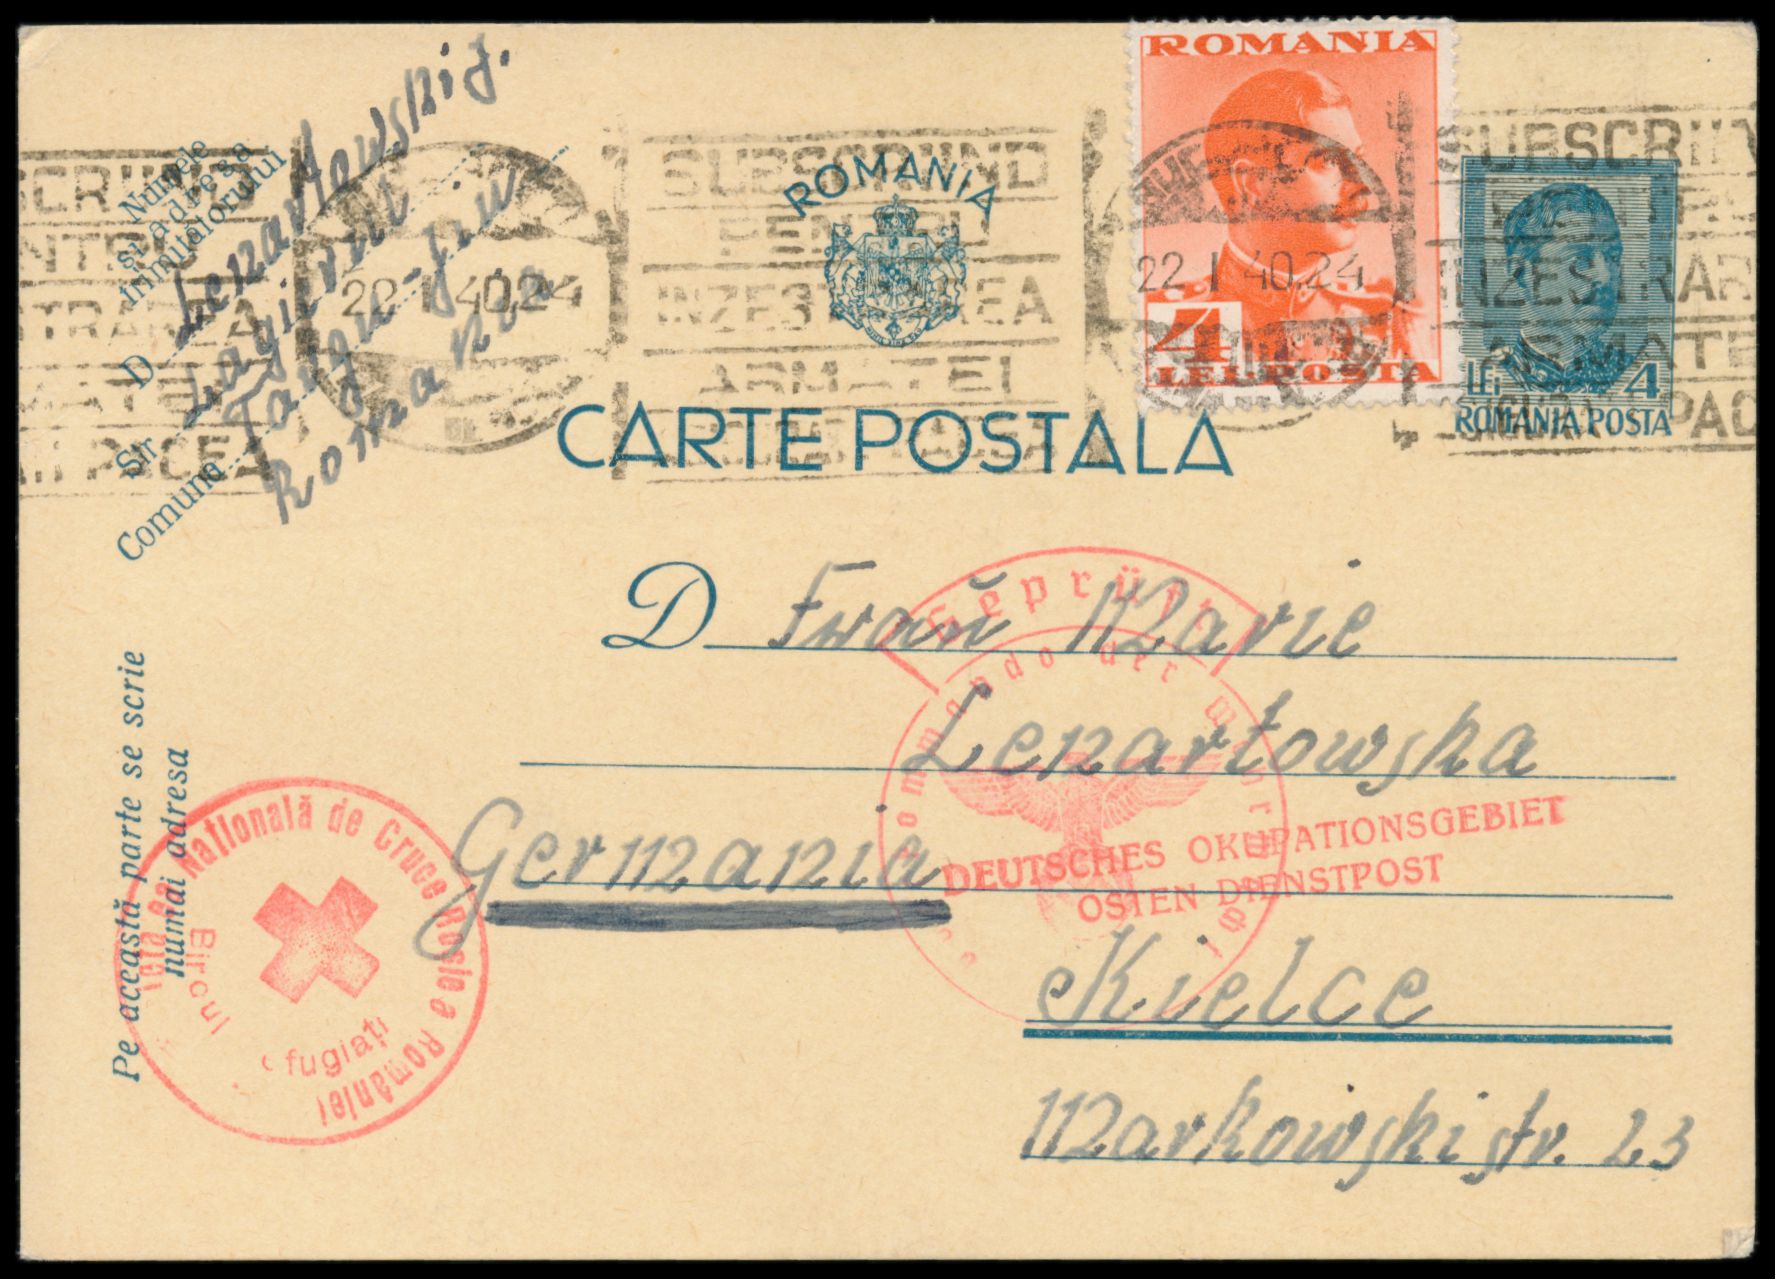 ROMANIA
ROMANIA
4
LEI POSTA
LEI 4
ROMANIA POSTA
SUBSCRIIND
PENTRU
INZESTRAREA
ARMATEI
22 I 40.24
22 I 40.24
CARTE POSTALA
Numele
și adresa
trimițătorului
D Lenartowski J.
Str. Lagărul
Comuna Targu-Jiu
Romania
Pe această parte se scrie
numai adresa
D Frau Marie
Lenartowska
Germania
Kielce
Markowskistr. 23
Geprüft
Commando der
DEUTSCHES OKUPATIONSGEBIET
OSTEN DIENSTPOST
Națională de Cruce Rosie a României
Biroul
fugiați